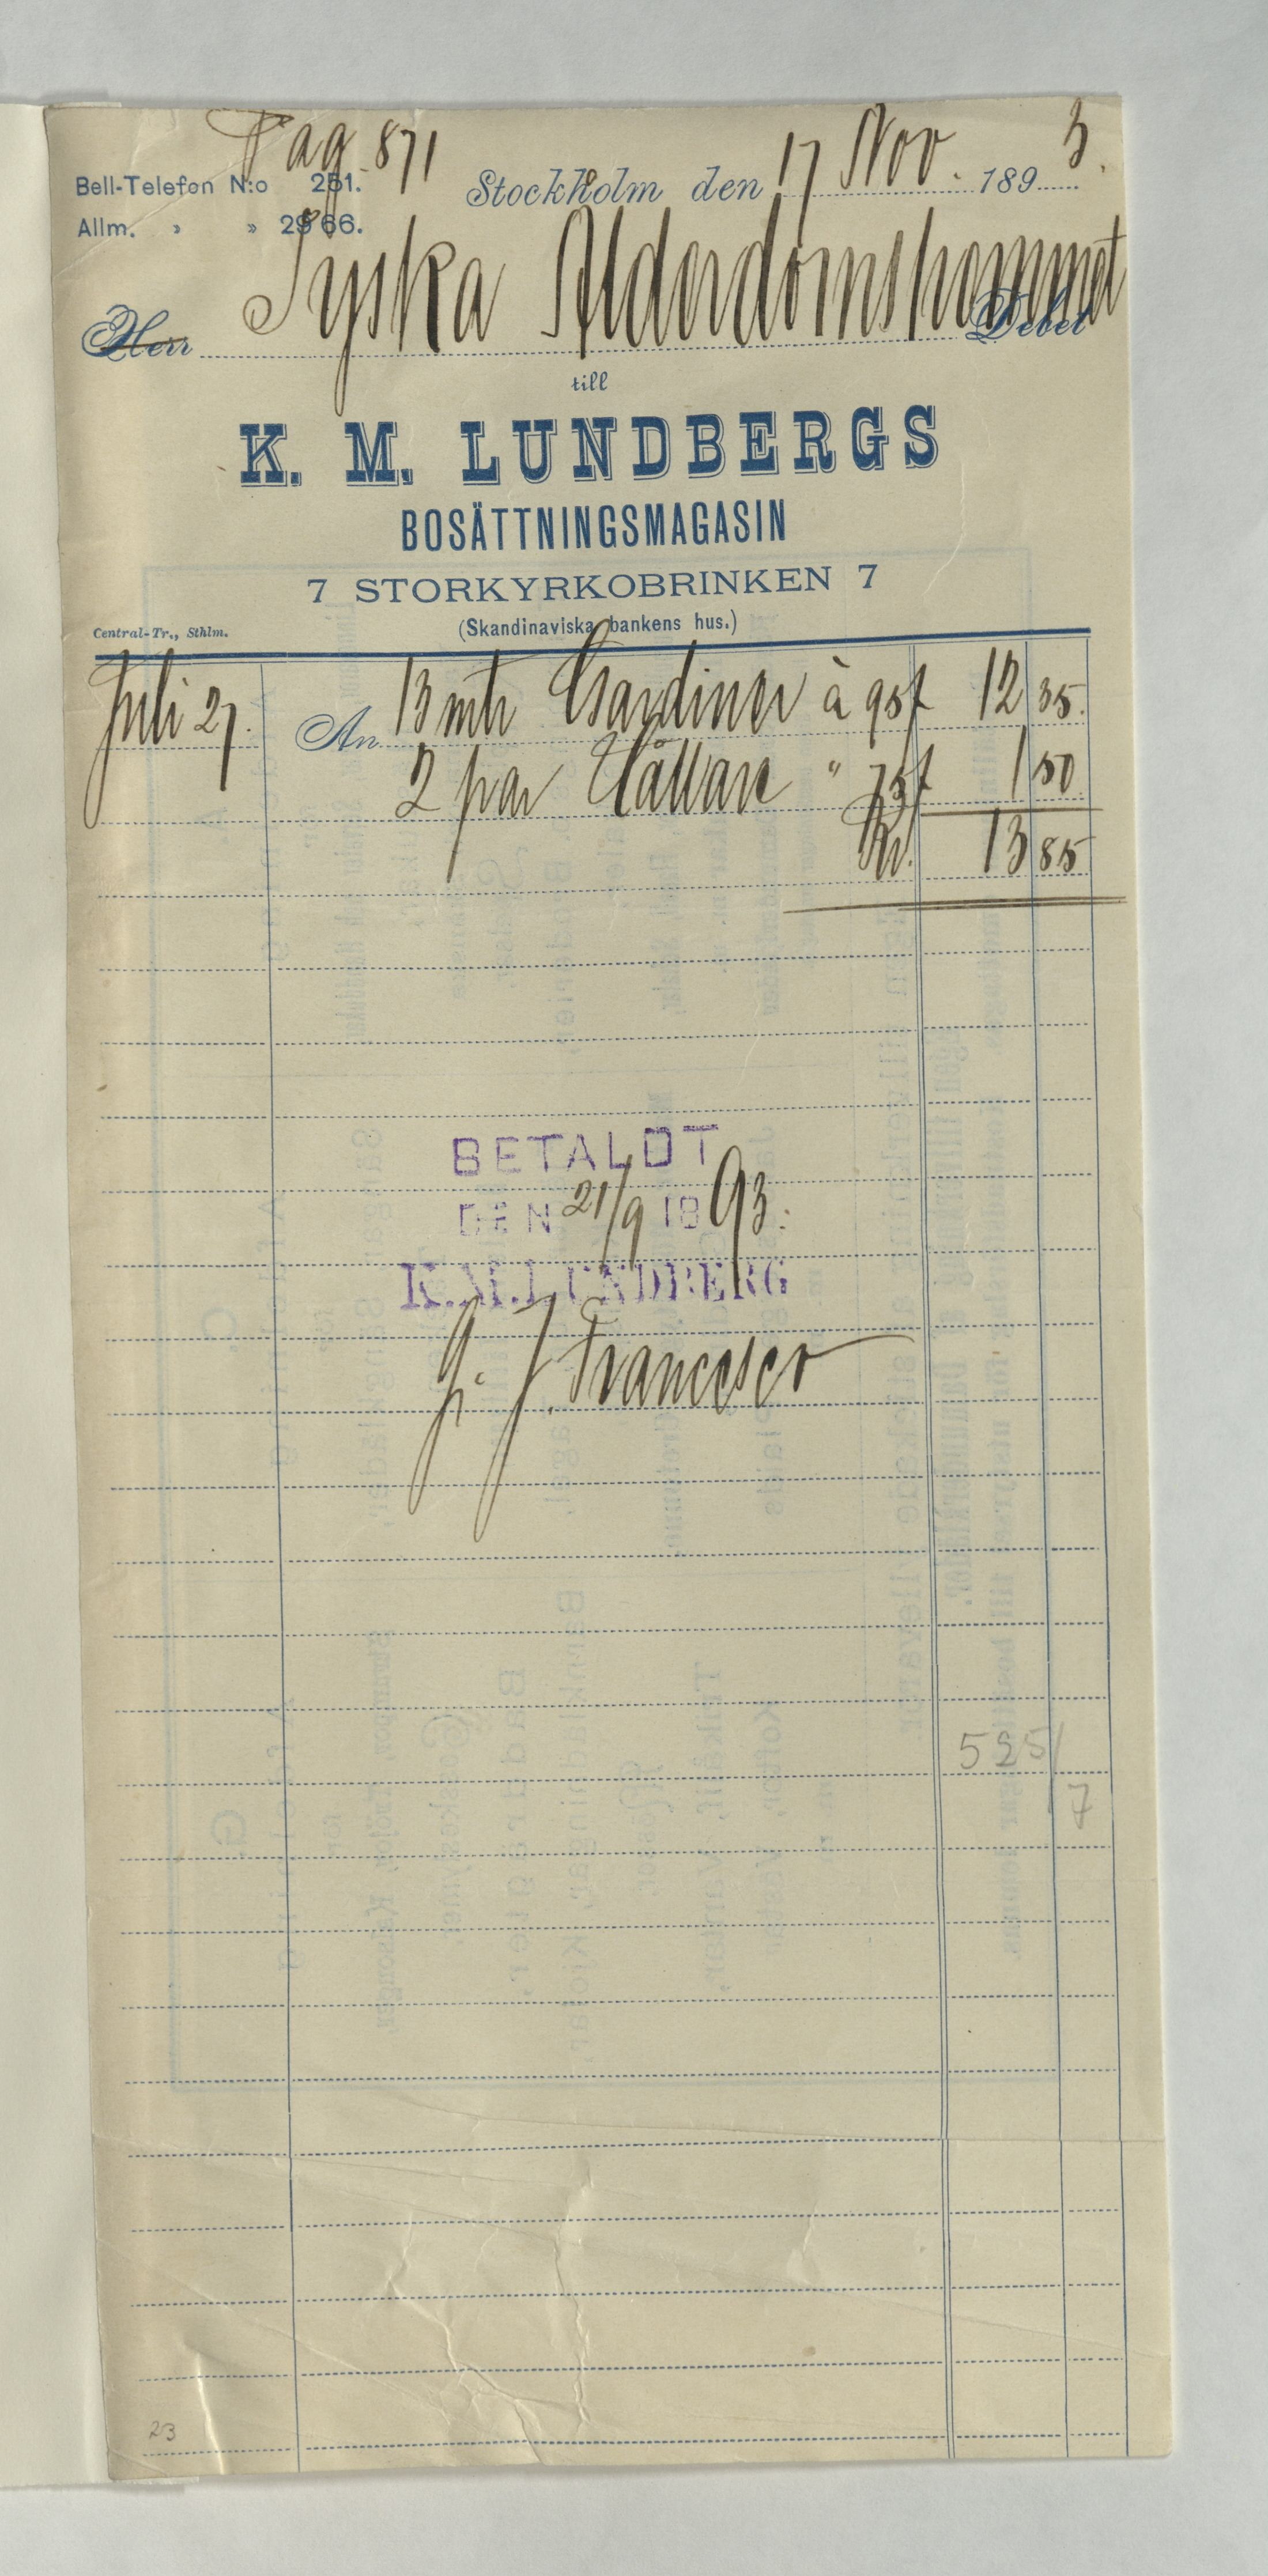 Pag 871
Bell-Telefon N:o 251.
Stockholm den 17 Nov. 1893.
Allm. » » 2966.
Herr Tyska Ålderdomshemmet Debet
till
K. M. LUNDBERGS
BOSÄTTNINGSMAGASIN
7 STORKYRKOBRINKEN 7
(Skandinaviska bankens hus.)
Central-Tr., Sthlm.
Juli 27. An 13 mtr Gardiner à 95f 12 35.
2 par Hållare " 75f 1 50.
Kr. 13 85
BETALDT
DEN 21/9 1893.
K.M. LUNDBERG
J. Francesco
525/
7
23